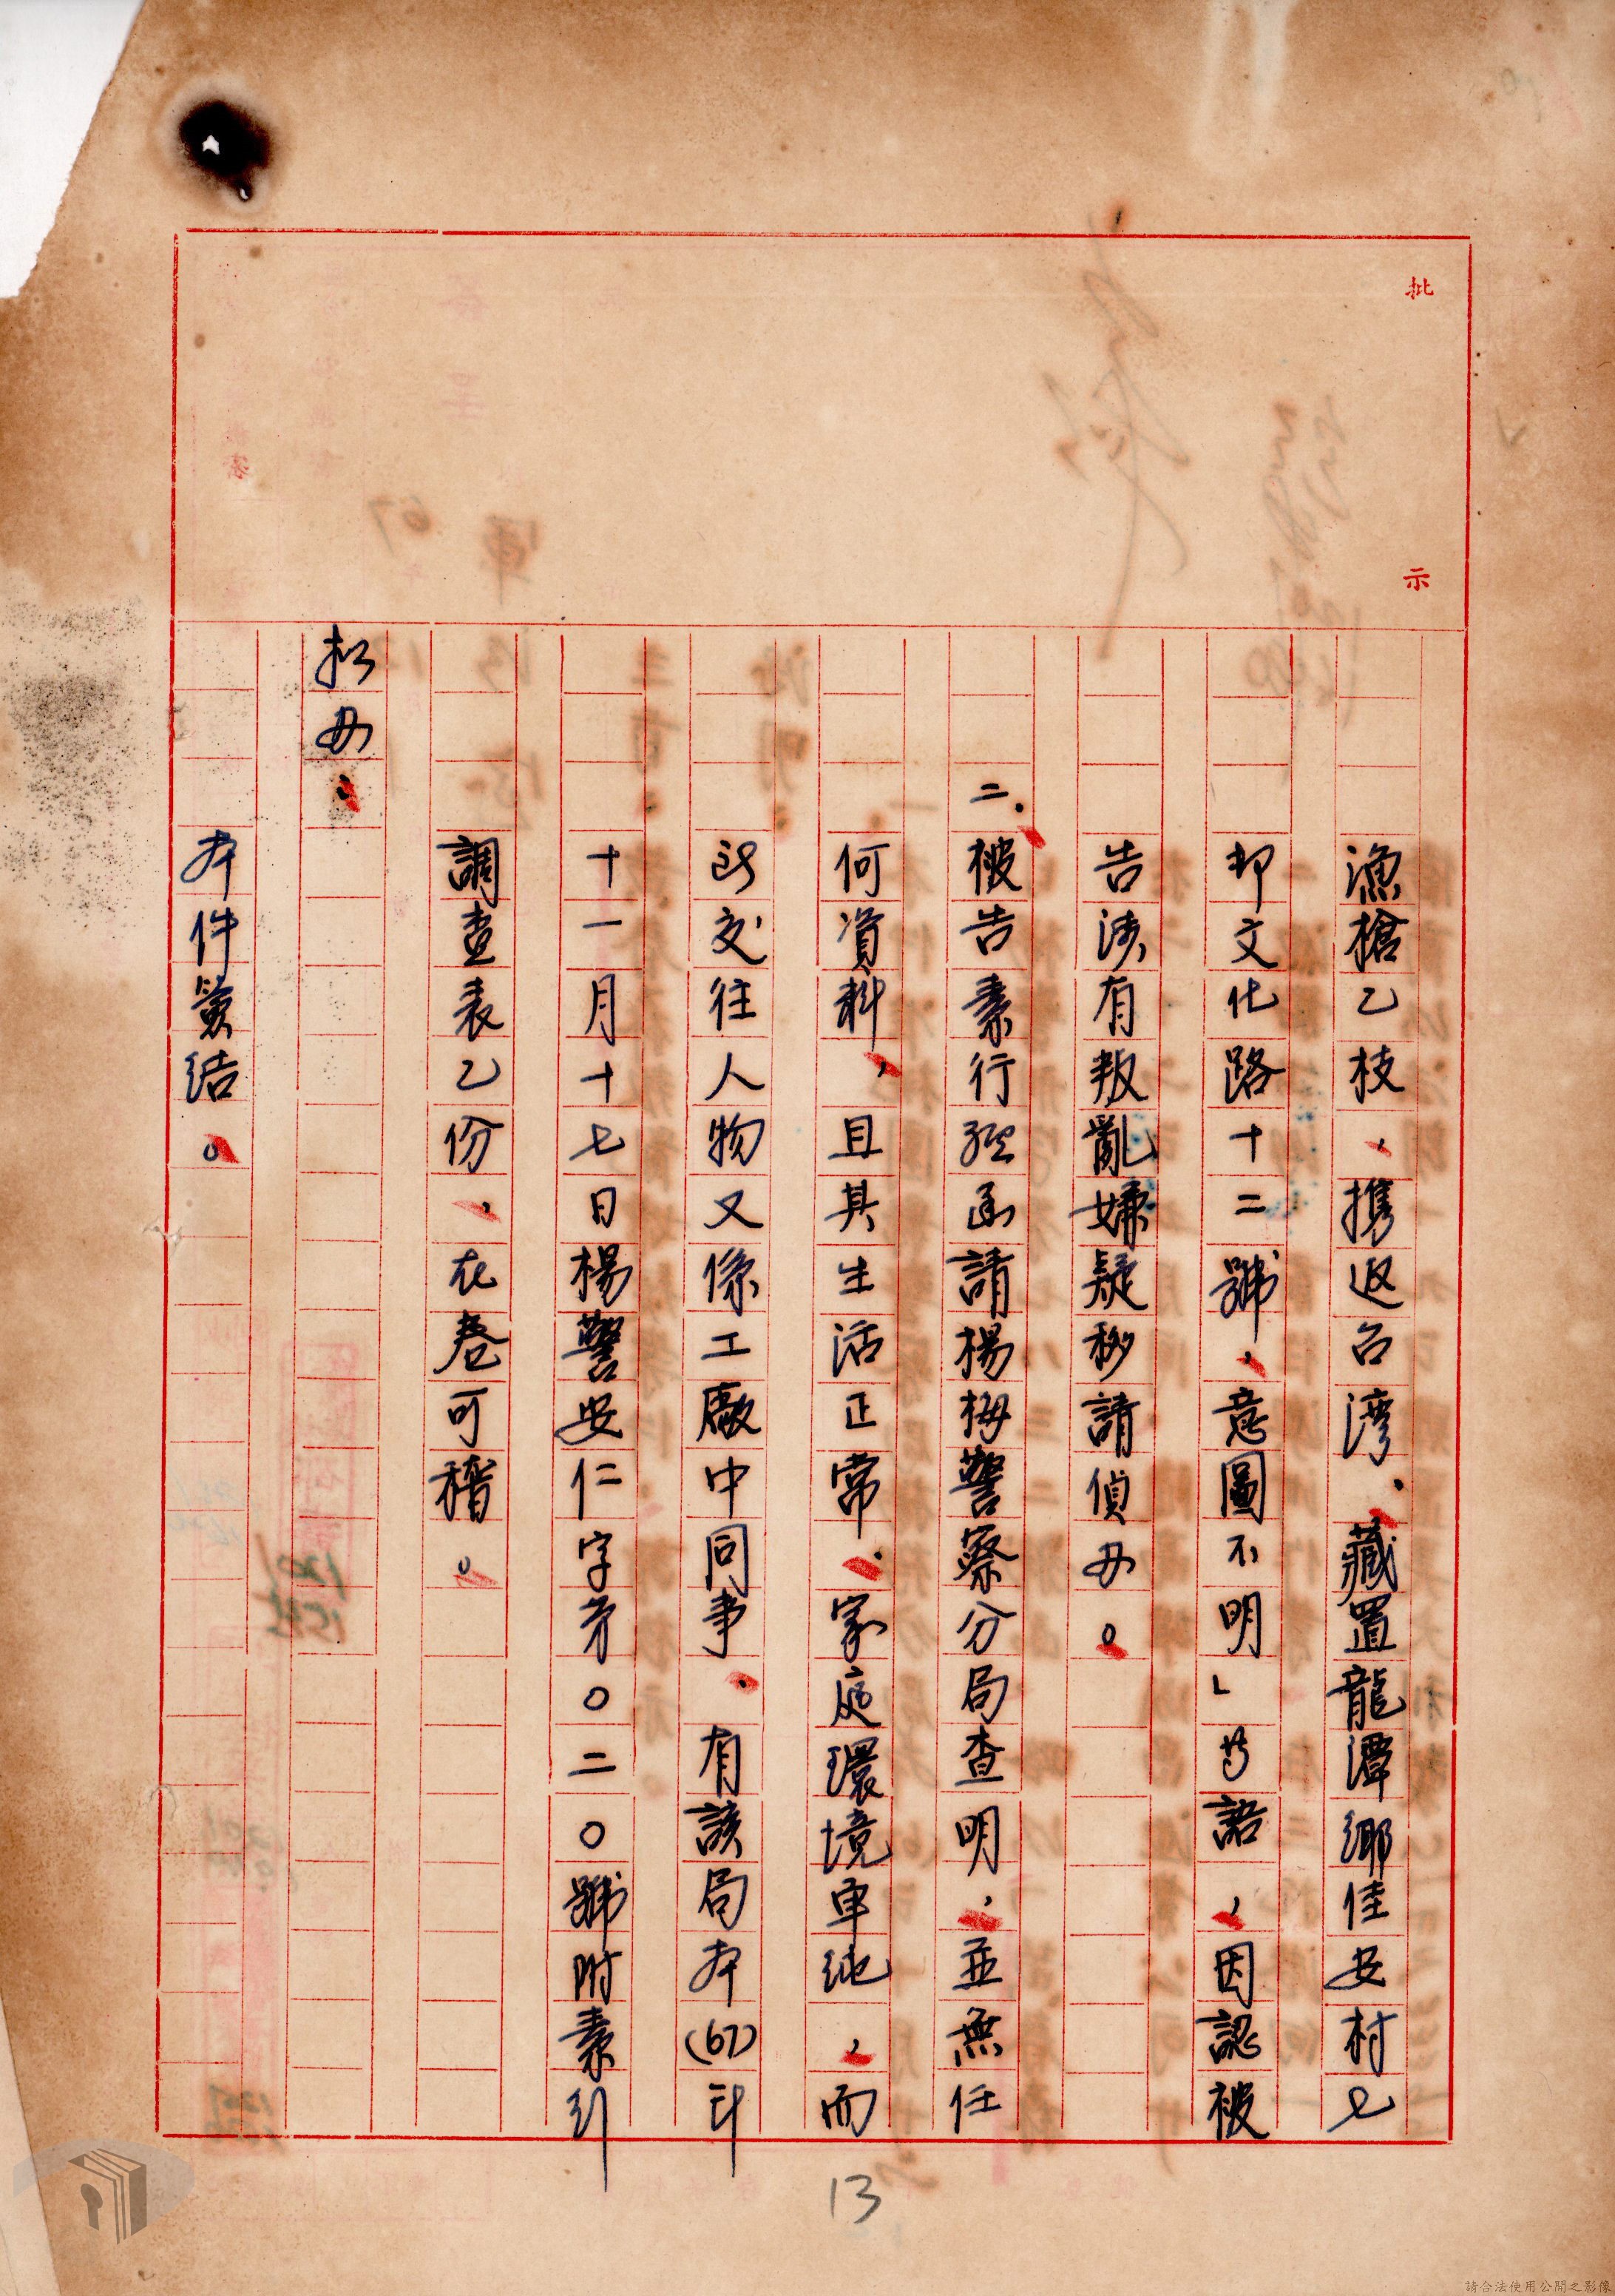 批示
漁槍乙枝，携返台湾、藏置龍潭鄉佳安村七
邻文化路十二號，意圖不明」等語，因認被
告涉有叛亂嫌疑移請偵办。
二.被告素行經函請楊梅警察分局查明，並無任
何資料，且其生活正常、家庭環境单純，而
所交往人物又係工廠中同事、有該局本(67)年
十一月十七日楊警安仁字第0二0號附素行
調查表乙份、在卷可稽。
拟办：
本件簽結。
13
請合法使用公開之影像